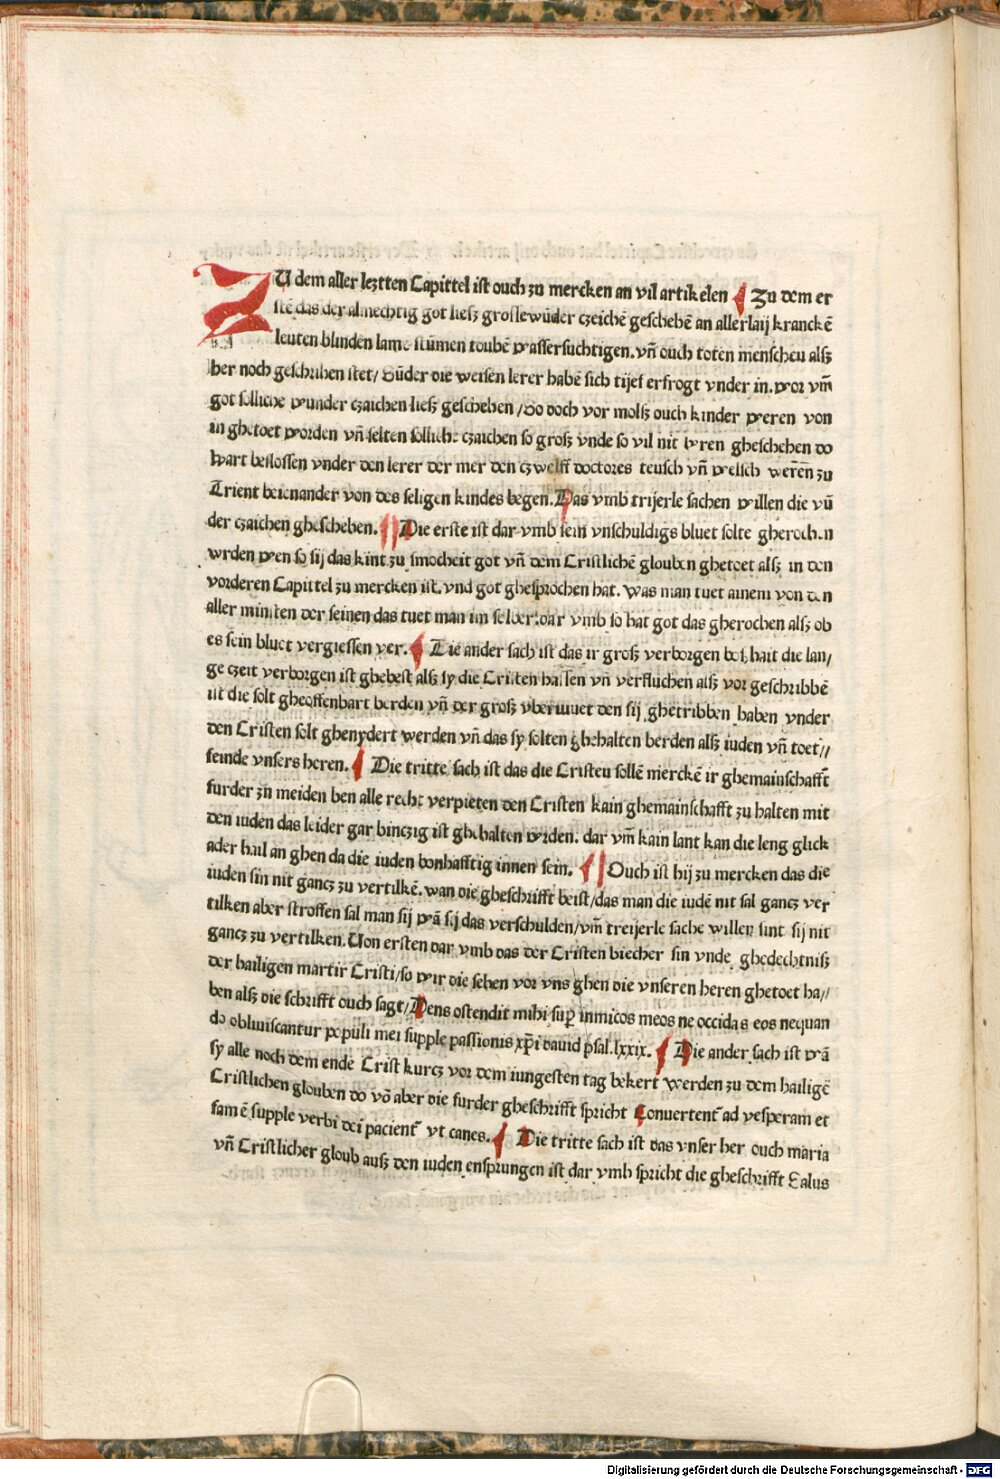 ZU dem aller leztten Capittel ist ouch zu mercken an vil artikelen Zu dem er
stē das der almechtig got liesz groslewūder czeichē geschehē an allerlaij kranckē
leuten blinden lame stūmen toubē wassersuchtigen. vn̄ ouch toten menscheu alsz
her noch geschriben stet/ Būder die weisen lerer habē sich tijef erfrogt vnder in. wor vm̄
got solliche wunder czaichen liesz geschehen /So doch vor molsz ouch kinder weren von
in ghetoet worden vn̄ selten solliche czaichen so grosz vnde so vil nit wren gheschehen do
wart beslossen vnder den lerer der mer den czwelff doctores teusch vn̄ welsch weren zu
Trient beienander von des seligen kindes begen. Das vmb trijerle sachen willen die vū
der czaichen gheschehen. Die erste ist dar vmb sein vnschuldigs bluet solte gherochen
wrden wen so sij das kint zu smocheit got vn̄ dem Cristlichē glouben ghetoet alsz in den
vorderen Capittel zu mercken ist. vnd got ghesprochen hat. was man tuet ainem von den
aller minsten der seinen das tuet man im selber: dar vmb so hat got das gherochen alsz ob
es sein bluet vergiessen wer. Die ander sach ist das ir grosz verborgen boszhait die lan/
ge czeit verborgen ist ghebest alsz sy die Cristen hassen vn̄ verfluchen alsz vor geschribbē
ist die solt gheoffenbart berden vn̄ der grosz vbermuet den sij ghetribben haben vnder
den Cristen solt ghenydert werden vn̄ das sy solten ghehalten berden alsz iuden vn̄ toet//
feinde vnsers heren. Die tritte sach ist das die Cristeu sollē merckē ir ghemainschafft
furder zu meiden ben alle recht verpieten den Cristen kain ghemainschafft zu halten mit
den iuden das leider gar binczig ist ghehalten wrden. dar vm̄ kain lant kan die leng glick
ader hail an ghen da die iuden bonhafftig innen sein. Ouch ist hij zu mercken das die
iuden sin nit gancz zu vertilkē. wan die gheschrifft beist/das man die iudē nit sal gancz ver
tilken aber stroffen sal man sij wā sij das verschulden/vm̄ treijerle sache willen sint sij nit
gancz zu vertilken. Uon ersten dar vmb das der Cristen biecher sin vnde ghedechtnisz
der hailigen martir Cristi/so wir die sehen vor vns ghen die vnseren heren ghetoet ha//
ben alsz die schrifft ouch sagt/Dens ostendit mihi sup̄ inmicos meos ne occidas eos nequan
do obliuiscantur populi mei supple passionis xp̄i dauid psal. lxxix. Die ander sach ist wā
sy alle noch dem ende Crist kurcz vor dem iungesten tag bekert werden zu dem hailigē
Cristlichen glouben do vō aber die furder gheschrifft spricht Conuertent̄ ad vesperam et
famē supple verbi dei pacient̄ vt canes. Die tritte sach ist das vnser her ouch maria
vn̄ Cristlicher gloub ausz den iuden ensprungen ist dar vmb spricht die gheschrifft Salus
Digitalisierung gefördert durch die Deutsche Forschungsgemeinschaft - DFG